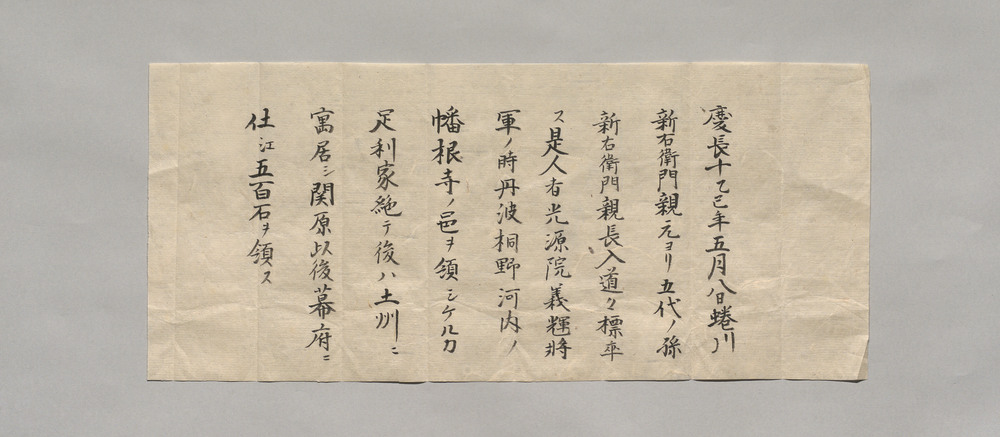 慶長十乙巳年五月八日蜷川
新右衛門親元ヨリ五代ノ孫
新右衛門親長入道々標卒
ス是人者光源院義輝將
軍ノ時丹波桐野河内ノ
幡根寺ノ邑ヲ領シケルカ
足利家絶テ後ハ土州ニ
寓居シ関原以後幕府ニ
仕江五百石ヲ領ス